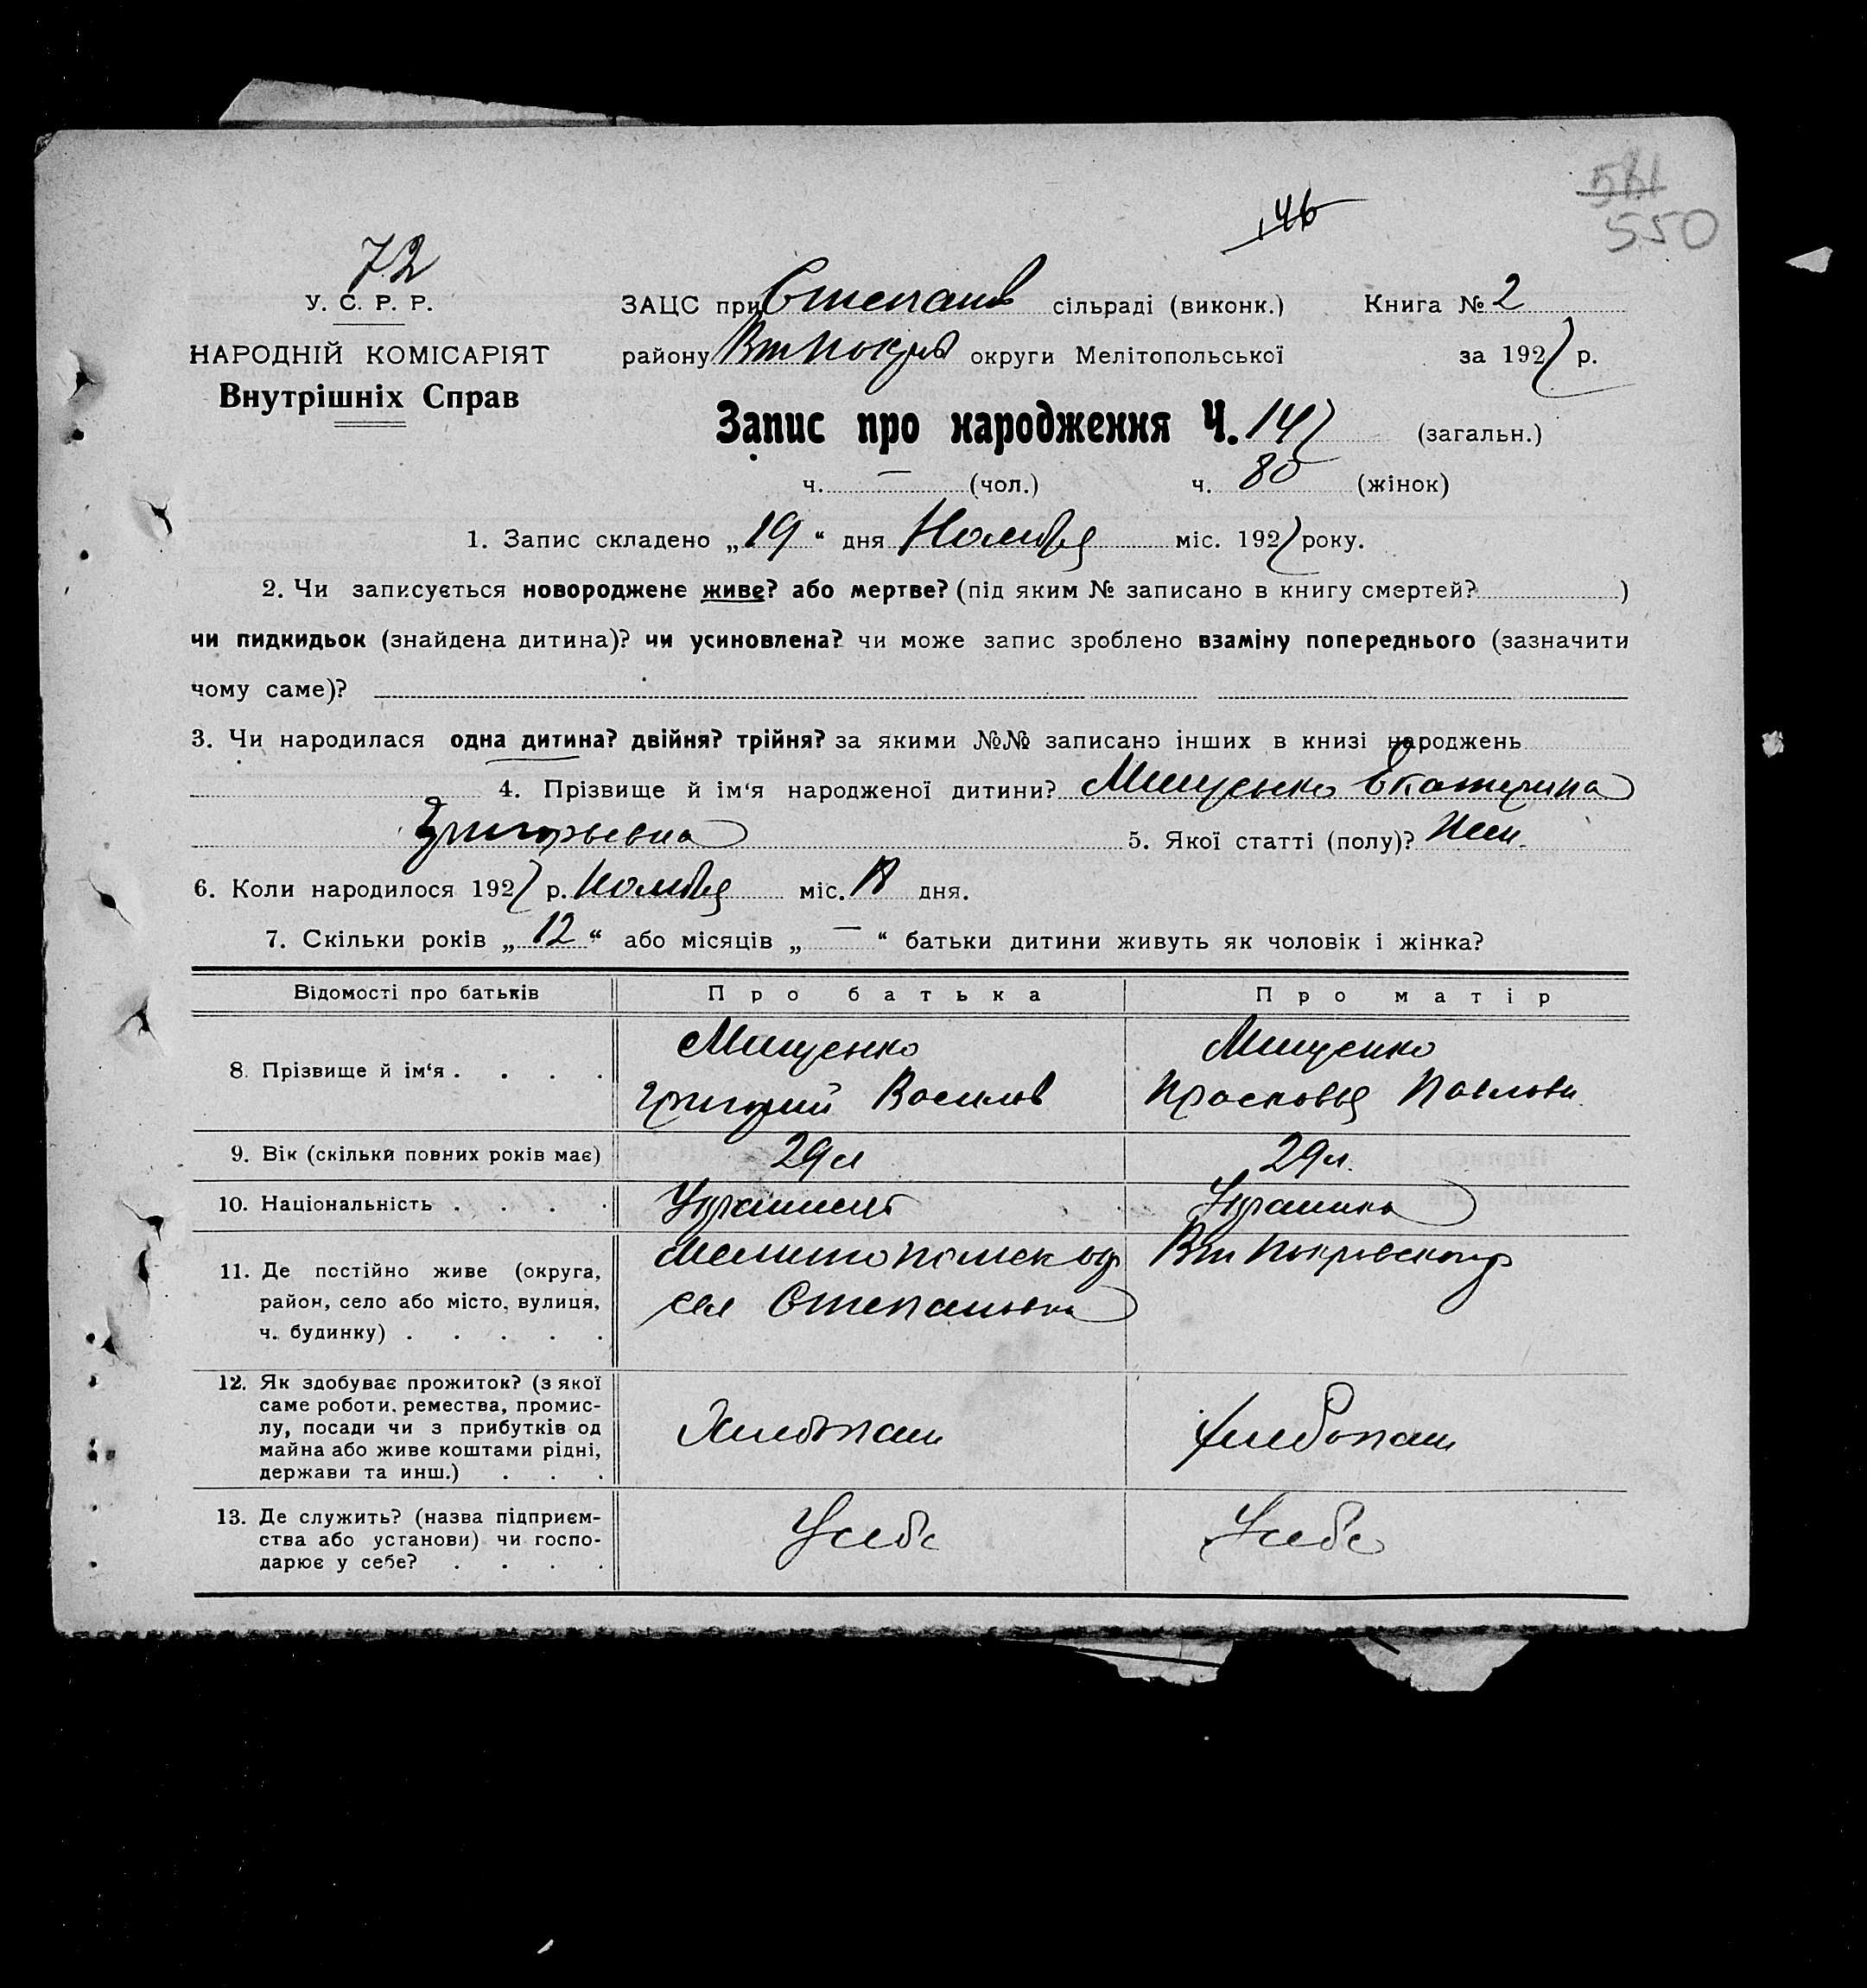 581
550
146
72
У. С. Р. Р.
НАРОДНІЙ КОМІСАРІЯТ
Внутрішніх Справ
ЗАЦС при Степанів сільраді (виконк.) Книга № 2
району Вт Покров округи Мелітопольської за 1927 р.
Запис про народження Ч. 147 (загальн.)
ч. — (чол.) ч. 80 (жінок)
1. Запис складено „19“ дня Ноября міс. 1927 року.
2. Чи записується новороджене живе? або мертве? (під яким № записано в книгу смертей? )
чи пидкидьок (знайдена дитина)? чи усиновлена? чи може запис зроблено взаміну попереднього (зазначити
чому саме)?
3. Чи народилася одна дитина? двійня? трійня? за якими №№ записано інших в книзі народжень
4. Прізвище й ім‘я народженої дитини? Мищенко Екатерина
Григорьевна 5. Якої статті (полу)? Жен.
6. Коли народилося 1927 р. Ноября міс. дня.
7. Скільки років „12“ або місяців „—“ батьки дитини живуть як чоловік і жінка?
Відомості про батьків Про батька Про матір
8. Прізвище й ім‘я . . . . Мищенко Мищенко
Григорий Васильев Прасковья Павловн.
9. Вік (скільки повних років має) 29 л 29 л.
10. Національність . . . . Украинец Украинка
11. Де постійно живе (округа, район, село або місто, вулиця, ч. будинку) . . . . . Мелитопольск окр Вт Покровского р
сел Степановка
12. Як здобуває прожиток? (з якої саме роботи, ремества, промислу, посади чи з прибутків од майна або живе коштами рідні, держави та инш.) . . . Хлебопаш Хлебопаш
13. Де служить? (назва підприємства або установи) чи господарює у себе? . . . . У себе У себе